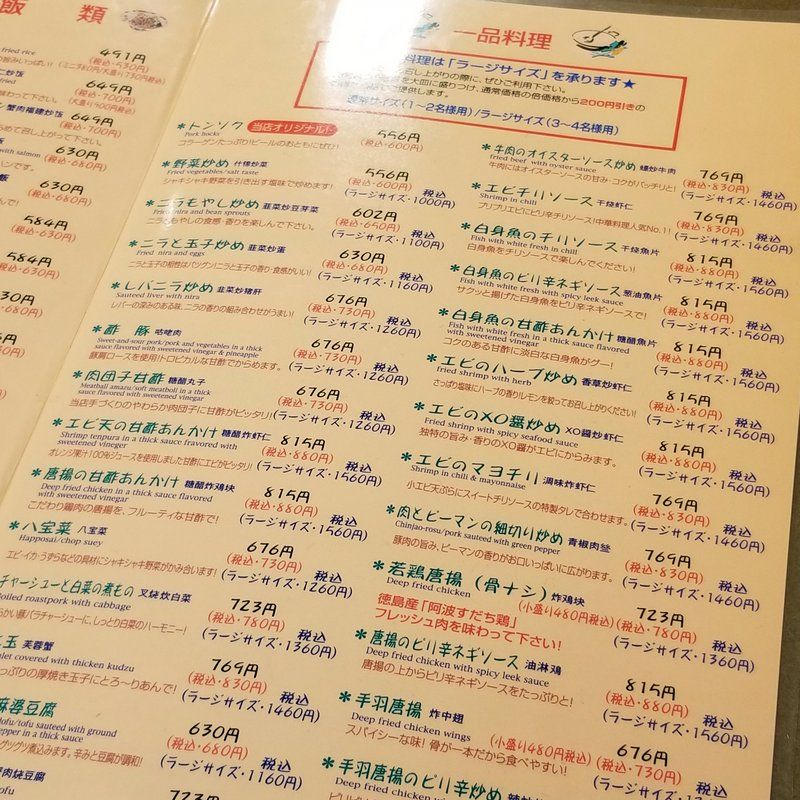 飯 類
fried rice
491円
(税込・530円)
(ミニ270円/大盛り730円税込)
649円
(税込・700円)
(大盛り900円税込)
蟹肉福建炒饭
649円
(税込・700円)
with salmon
630円
(税込・680円)
630円
(税込・680円)
584円
(税込・630円)
584円
(税込・630円)
630円
(税込・680円)
一品料理
料理は「ラージサイズ」を承ります★
召し上がりの際に、ぜひご利用下さい。
を大皿に盛りつけ、通常価格の倍価格から200円引きの
で提供します。
通常サイズ(1〜2名様用)/ラージサイズ(3〜4名様用)
*トンソク 当店オリジナル!
Pork hocks
556円
(税込・600円)
コラーゲンたっぷり!ビールのおともにぜひ!
*野菜炒め 什锦炒菜
Fried vegetables/salt taste
556円
(税込・600円) 税込
シャキシャキ野菜を引き出す塩味で炒めます!
(ラージサイズ・1000円)
*ニラもやし炒め 韮菜炒豆芽菜
Fried nira and bean sprouts
602円
(税込・650円) 税込
ニラもやしの食感・香りを楽しんで下さい。
(ラージサイズ・1100円)
*ニラと玉子炒め 韮菜炒蛋
Fried nira and eggs
630円
(税込・680円) 税込
ニラと玉子の相性はバツグン!ニラの香り・食感がいい!
(ラージサイズ・1160円)
*レバニラ炒め 韮菜炒猪肝
Sauteed liver with nira
676円
(税込・730円) 税込
レバーの深みのある味、ニラの香りの組み合わせがうまい!
(ラージサイズ・1260円)
*酢 豚 咕咾肉
Sweet-and sour pork/pork and vegetables in a thick
sauce flavored with sweetened vinegar & pineapple
676円
(税込・730円) 税込
豚肩ロースを使用!トロピカルな甘酢でからめます。
(ラージサイズ・1260円)
*肉団子甘酢 糖醋丸子
Meatball amazu/soft meatboll in a thick
sauce flavored with sweetened vinegar
676円
(税込・730円) 税込
当店手づくりのやわらか肉団子に甘酢がピッタリ!
(ラージサイズ・1260円)
*エビ天の甘酢あんかけ 糖醋炸虾仁
Shrimp tenpura in a thick sauce fravored with
sweetened vinegar
815円
(税込・880円) 税込
オレンジ果汁100%ジュースを使用しました甘酢にエビがピッタリ!
(ラージサイズ・1560円)
*唐揚の甘酢あんかけ 糖醋炸鸡块
Deep fried chicken in a thick sauce flavored
with sweetened vinegar
815円
(税込・880円) 税込
こだわり鶏肉の唐揚を、フルーティな甘酢で!
(ラージサイズ・1560円)
*八宝菜 八宝菜
Happosai/chop suey
676円
(税込・730円) 税込
エビ・イカ・うずらなどの具材にシャキシャキ野菜がかみ合います!
(ラージサイズ・1260円)
チャーシューと白菜の煮もの 叉烧炊白菜
Boiled roastpork with cabbage
723円
(税込・780円) 税込
らかい豚バラチャーシューに、しっとり白菜のハーモニー!
(ラージサイズ・1360円)
玉 芙蓉蟹
let covered with thicken kudzu
769円
(税込・830円) 税込
っぷりの厚焼き玉子にとろ〜りあんで!
(ラージサイズ・1460円)
麻婆豆腐
Tofu/tofu sauteed with ground
pepper in a thick sauce
630円
(税込・680円) 税込
グツグツ煮込みます。辛みと豆腐が調和!
(ラージサイズ・1160円)
肉烧豆腐
723円
*牛肉のオイスターソース炒め 蠔炒牛肉
fried beef with oyster sauce
769円
(税込・830円) 税込
牛肉にはオイスターソースの甘み・コクがバッチリと!
(ラージサイズ・1460円)
*エビチリソース 干烧虾仁
Shrimp in chili
769円
(税込・830円) 税込
プリプリエビにピリ辛チリソース!中華料理人気No.1!
(ラージサイズ・1460円)
*白身魚のチリソース 干烧魚片
Fish with white fresh in chili
815円
(税込・880円) 税込
白身魚をチリソースで楽しんでください!
(ラージサイズ・1560円)
*白身魚のピリ辛ネギソース 葱油魚片
Fish with white fresh with spicy leek sauce
815円
(税込・880円) 税込
サクッと揚げた白身魚をピリ辛ネギソースで!
(ラージサイズ・1560円)
*白身魚の甘酢あんかけ 糖醋魚片
Fish with white fresh in a thick sauce flavored
with sweetened vinegar
815円
(税込・880円) 税込
コクのある甘酢に淡白な白身魚がグー!
(ラージサイズ・1560円)
*エビのハーブ炒め 香草炒虾仁
fried shrimp with herb
815円
(税込・880円) 税込
さっぱり塩味にハーブの香り!レモンを絞ってお召し上がりください!
(ラージサイズ・1560円)
*エビのXO醤炒め XO醤炒虾仁
Fried shrimp with spicy seafood sauce
815円
(税込・880円) 税込
独特の旨み・香りのXO醤がエビにからみます。
(ラージサイズ・1560円)
*エビのマヨチリ 调味炸虾仁
Shrimp in chili & mayonnaise
769円
(税込・830円) 税込
小エビ天ぷらにスイートチリソースの特製タレで合わせます。
(ラージサイズ・1460円)
*肉とピーマンの細切り炒め 青椒肉丝
Chinjao-rosu/pork sauteed with green pepper
769円
(税込・830円) 税込
豚肉の旨み、ピーマンの香りがお口いっぱいに広がります。
(ラージサイズ・1460円)
*若鶏唐揚(骨ナシ) 炸鸡块
Deep fried chicken
(小盛り480円税込)
723円
(税込・780円) 税込
(ラージサイズ・1360円)
徳島産「阿波すだち鶏」
フレッシュ肉を味わって下さい!
*唐揚のピリ辛ネギソース 油淋鸡
Deep fried chicken with spicy leek sauce
815円
(税込・880円) 税込
唐揚の上からピリ辛ネギソースをたっぷりと!
(ラージサイズ・1560円)
*手羽唐揚 炸中翅
Deep fried chicken wings
(小盛り480円税込)
676円
(税込・730円) 税込
スパイシーな味!骨が一本だから食べやすい!
(ラージサイズ・1260円)
*手羽唐揚のピリ辛炒め